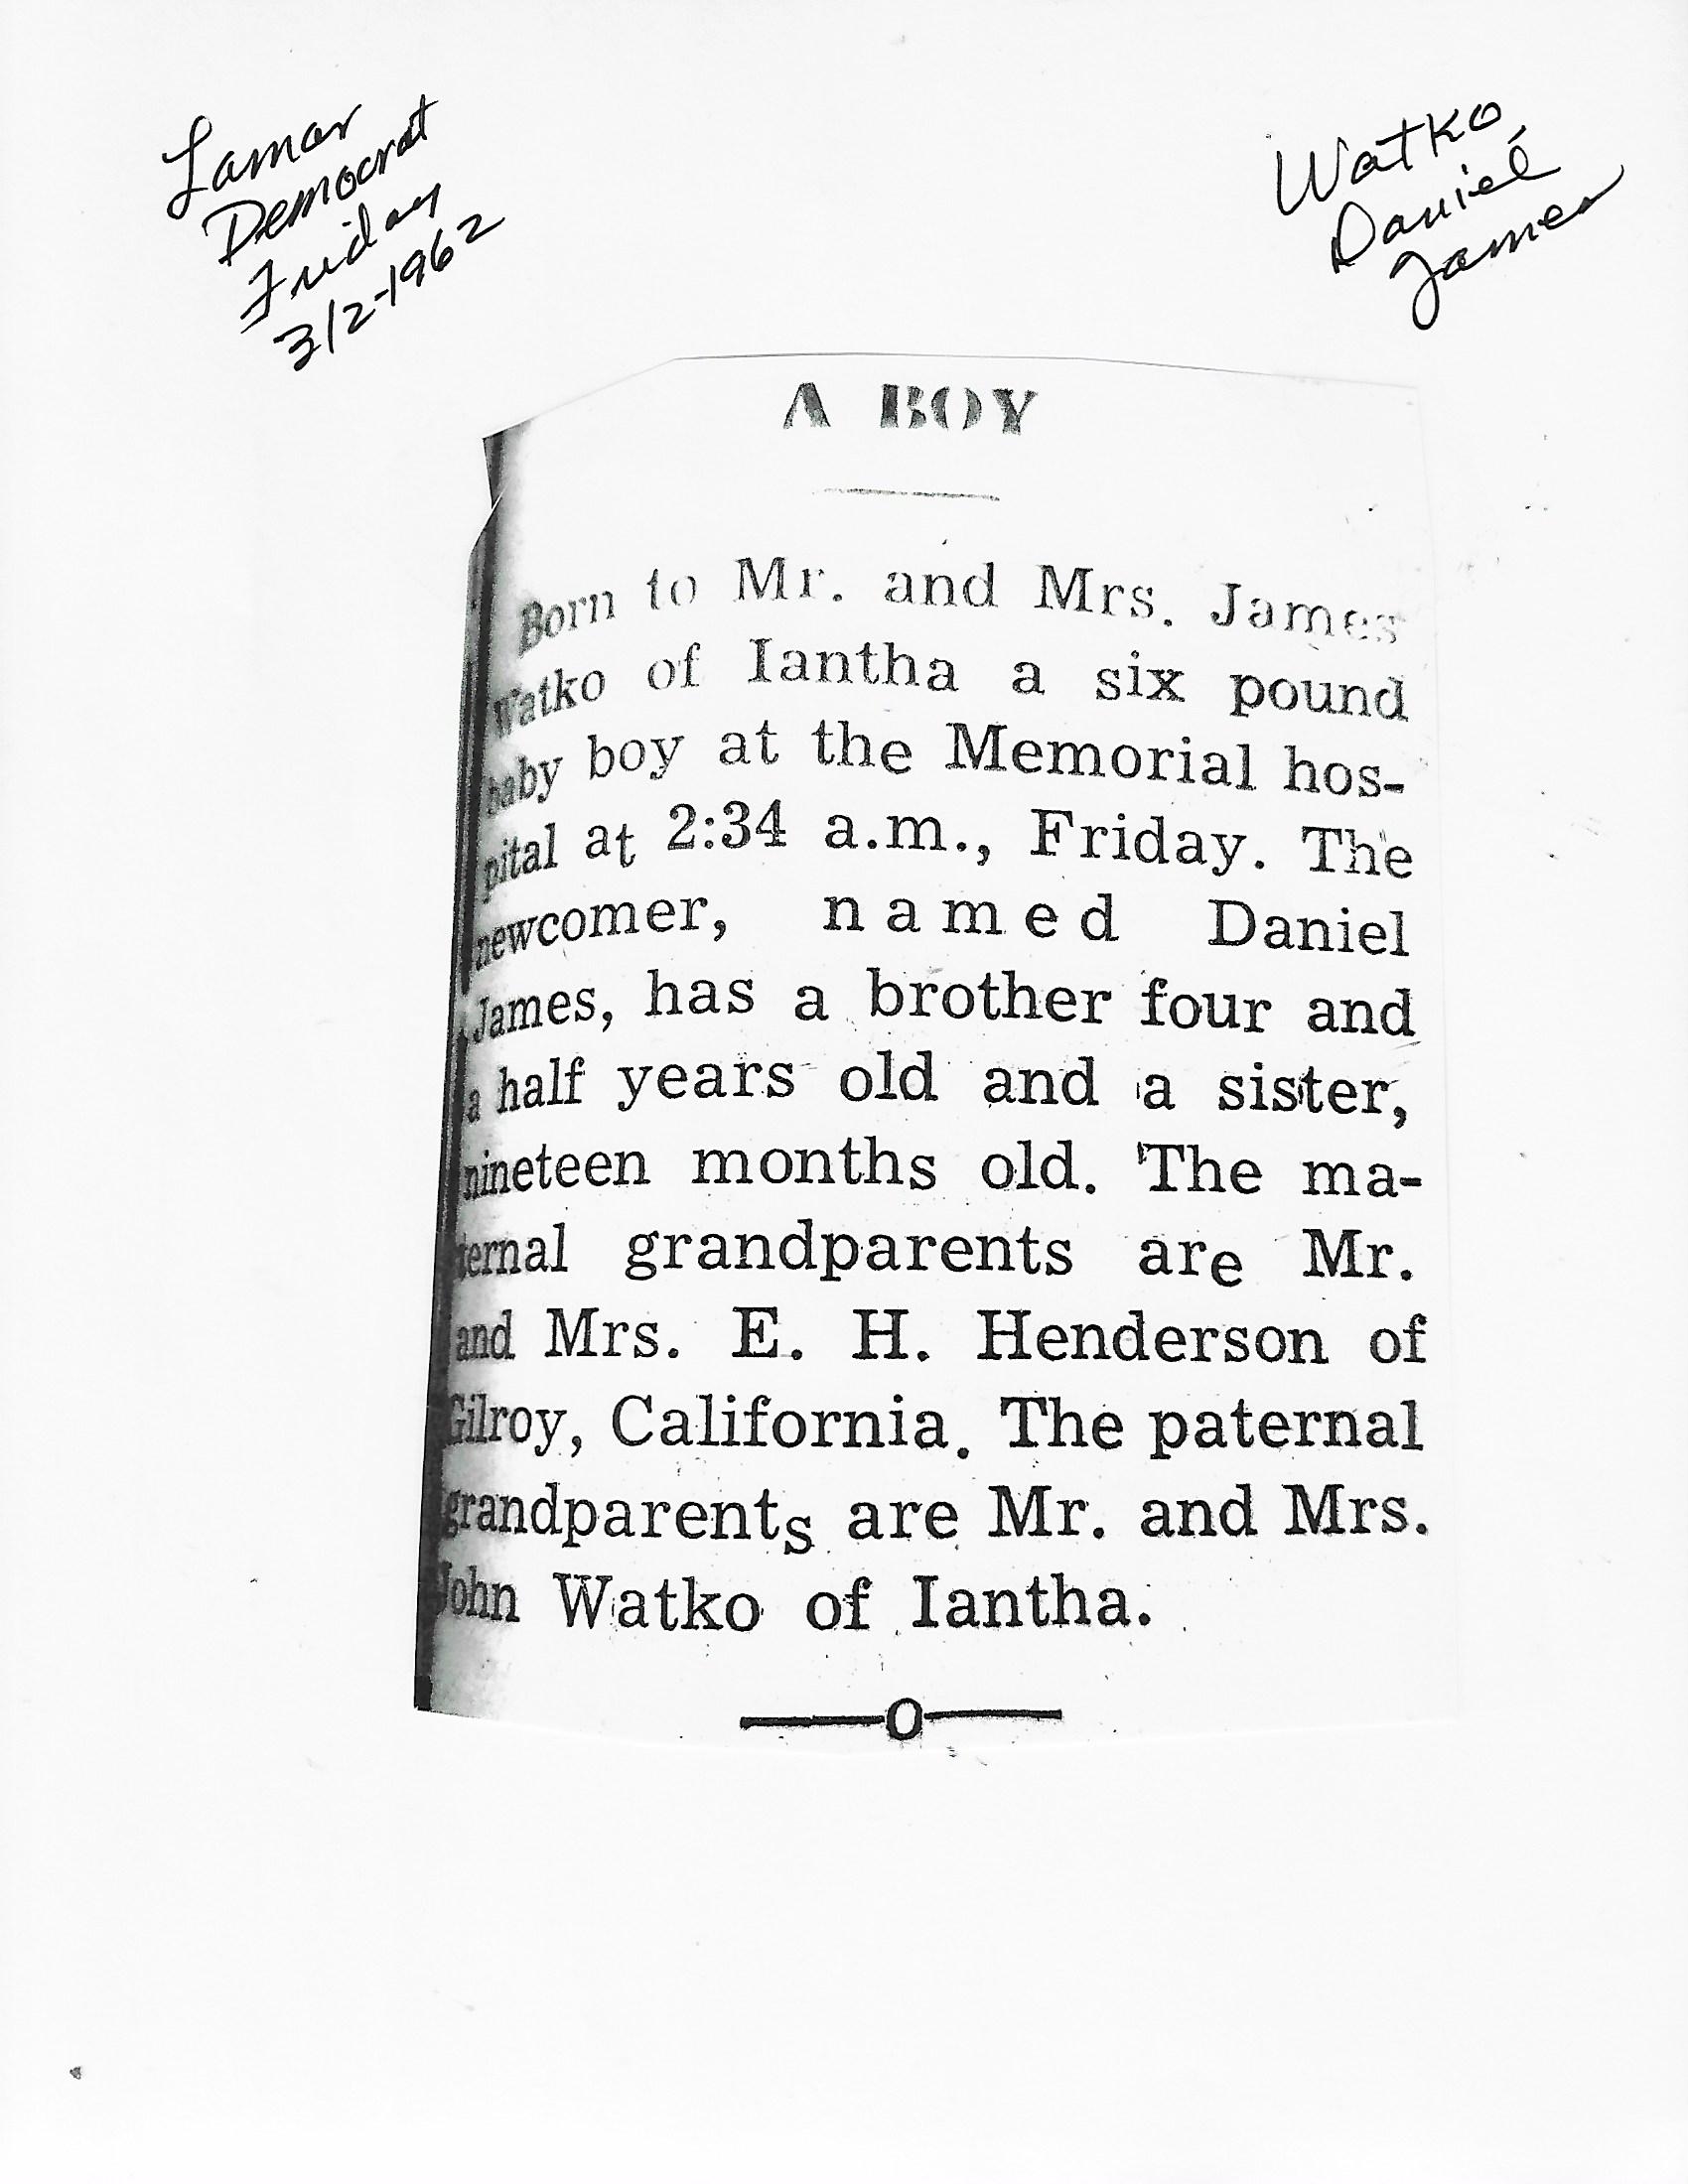 Lamar
Democrat
Friday
3/2-1962
Watko,
Daniel
James
A BOY
Born to Mr. and Mrs. James
Watko of Iantha a six pound
baby boy at the Memorial hos-
pital at 2:34 a.m., Friday. The
newcomer, named Daniel
James, has a brother four and
a half years old and a sister,
nineteen months old. The ma-
ternal grandparents are Mr.
and Mrs. E. H. Henderson of
Gilroy, California. The paternal
grandparents are Mr. and Mrs.
John Watko of Iantha.